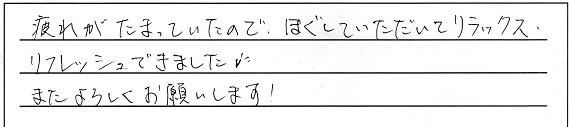 疲れがたまっていたので、ほぐしていただいてリラックス・
リフレッシュできました♪
またよろしくお願いします!